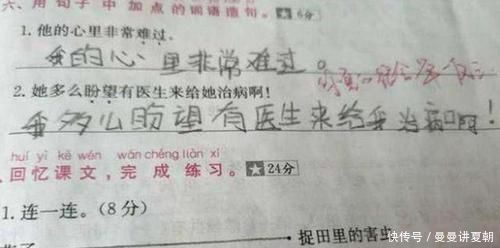 六、用句子中加点的词语造句。★6分
1.他的心里非常难过。
我的心里非常难过。
2.她多么盼望有医生来给她治病啊!
我多么盼望有医生来给我治病啊!
huí yì kè wén wán chéng liàn xí
回忆课文,完成练习。★24分
1.连一连。(8分)
捉田里的害虫
快传号/曼曼讲夏朝